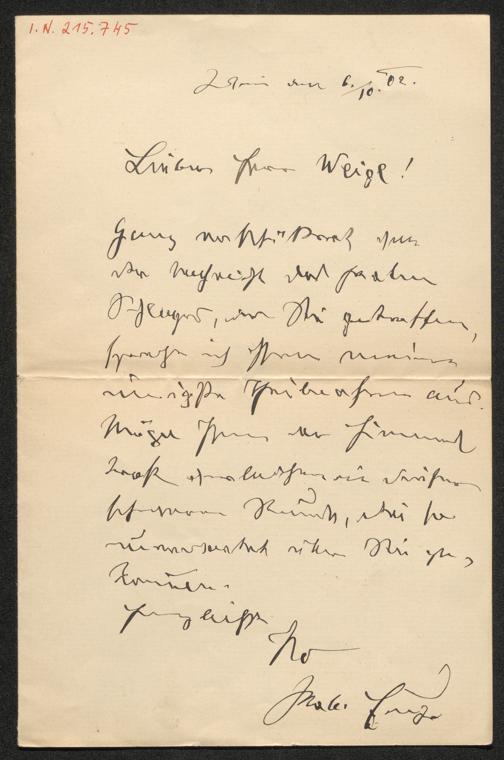 I. N. 215.745
Wien den 6./10. 02.
Lieber Herr Weigl!
Ganz erschüttert von
der Nachricht des
Schlages, der Sie getroffen,
spreche ich Ihnen meine
innigste Theilnahme aus.
Möge Ihnen der Himmel
Kraft in dieser
schweren Stunde, die so
unerwartet über Sie ge-
kommen.
Herzlichst
Ihr